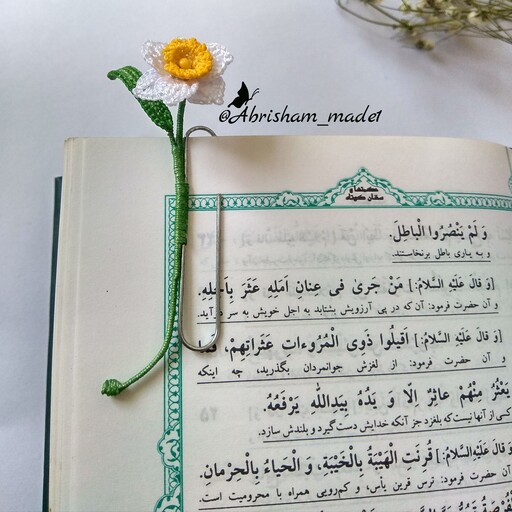 @Abrisham_made1
گفتمها و
سخنان کوتاه
وَ لَمْ يَنْصُرُوا الْبَاطِلَ.
و به یاری باطل برنخاستند.
[وَ قَالَ عَلَيْهِ السَّلامُ:] مَنْ جَرىٰ فِى عِنانِ اَمَلِهِ عَثَرَ بِاَجَلِهِ.
و آن حضرت فرمود: آن که در پی آرزویش بشتابد به اجل خویش به سر درآید.
[وَ قَالَ عَلَيْهِ السَّلامُ:] اَقيلُوا ذَوِى الْمُرُوءاتِ عَثَراتِهِمْ، فَمَا
و آن حضرت فرمود: از لغزش جوانمردان بگذرید، چه اینکه
يَعْثُرُ مِنْهُمْ عاثِرٌ اِلّا وَ يَدُهُ بِيَدِاللّٰهِ يَرْفَعُهُ.
کسی از آنها نیست که بلغزد جز آنکه خدایش دست گیرد و بلندش سازد.
[وَ قَالَ عَلَيْهِ السَّلامُ:] قُرِنَتِ الْهَيْبَةُ بِالْخَيْبَةِ، وَ الْحَياءُ بِالْحِرْمانِ.
آن حضرت فرمود: ترس قرین یأس، و کم‌رویی همراه با محرومیت است.